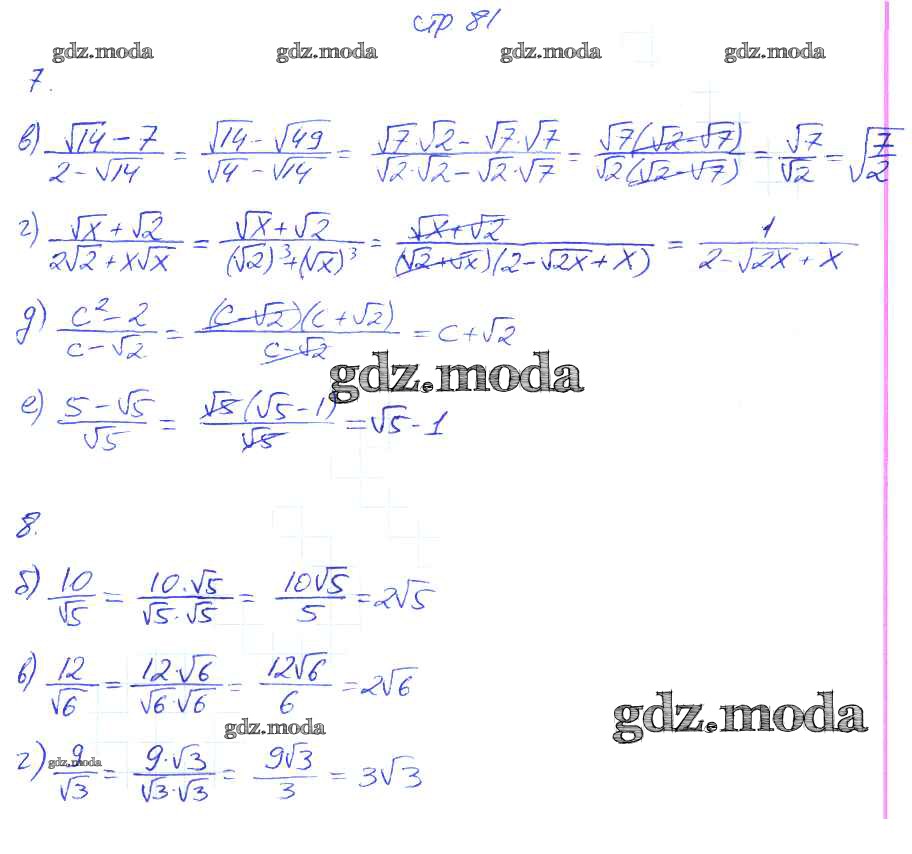 стр 81
gdz.moda gdz.moda gdz.moda gdz.moda
7.
в) (√14 − 7)/(2 − √14) = (√14 − √49)/(√4 − √14) = (√7·√2 − √7·√7)/(√2·√2 − √2·√7) = (√7(√2 − √7))/(√2(√2 − √7)) = √7/√2 = √(7/2)
г) (√x + √2)/(2√2 + x√x) = (√x + √2)/((√2)³ + (√x)³) = (√x + √2)/((√2 + √x)(2 − √2x + x)) = 1/(2 − √2x + x)
д) (c² − 2)/(c − √2) = ((c − √2)(c + √2))/(c − √2) = c + √2
gdz.moda
е) (5 − √5)/√5 = (√5(√5 − 1))/√5 = √5 − 1
8.
б) 10/√5 = (10·√5)/(√5·√5) = 10√5/5 = 2√5
в) 12/√6 = (12·√6)/(√6·√6) = 12√6/6 = 2√6
gdz.moda
gdz.moda
г) 9/√3 = (9·√3)/(√3·√3) = 9√3/3 = 3√3
gdz.moda